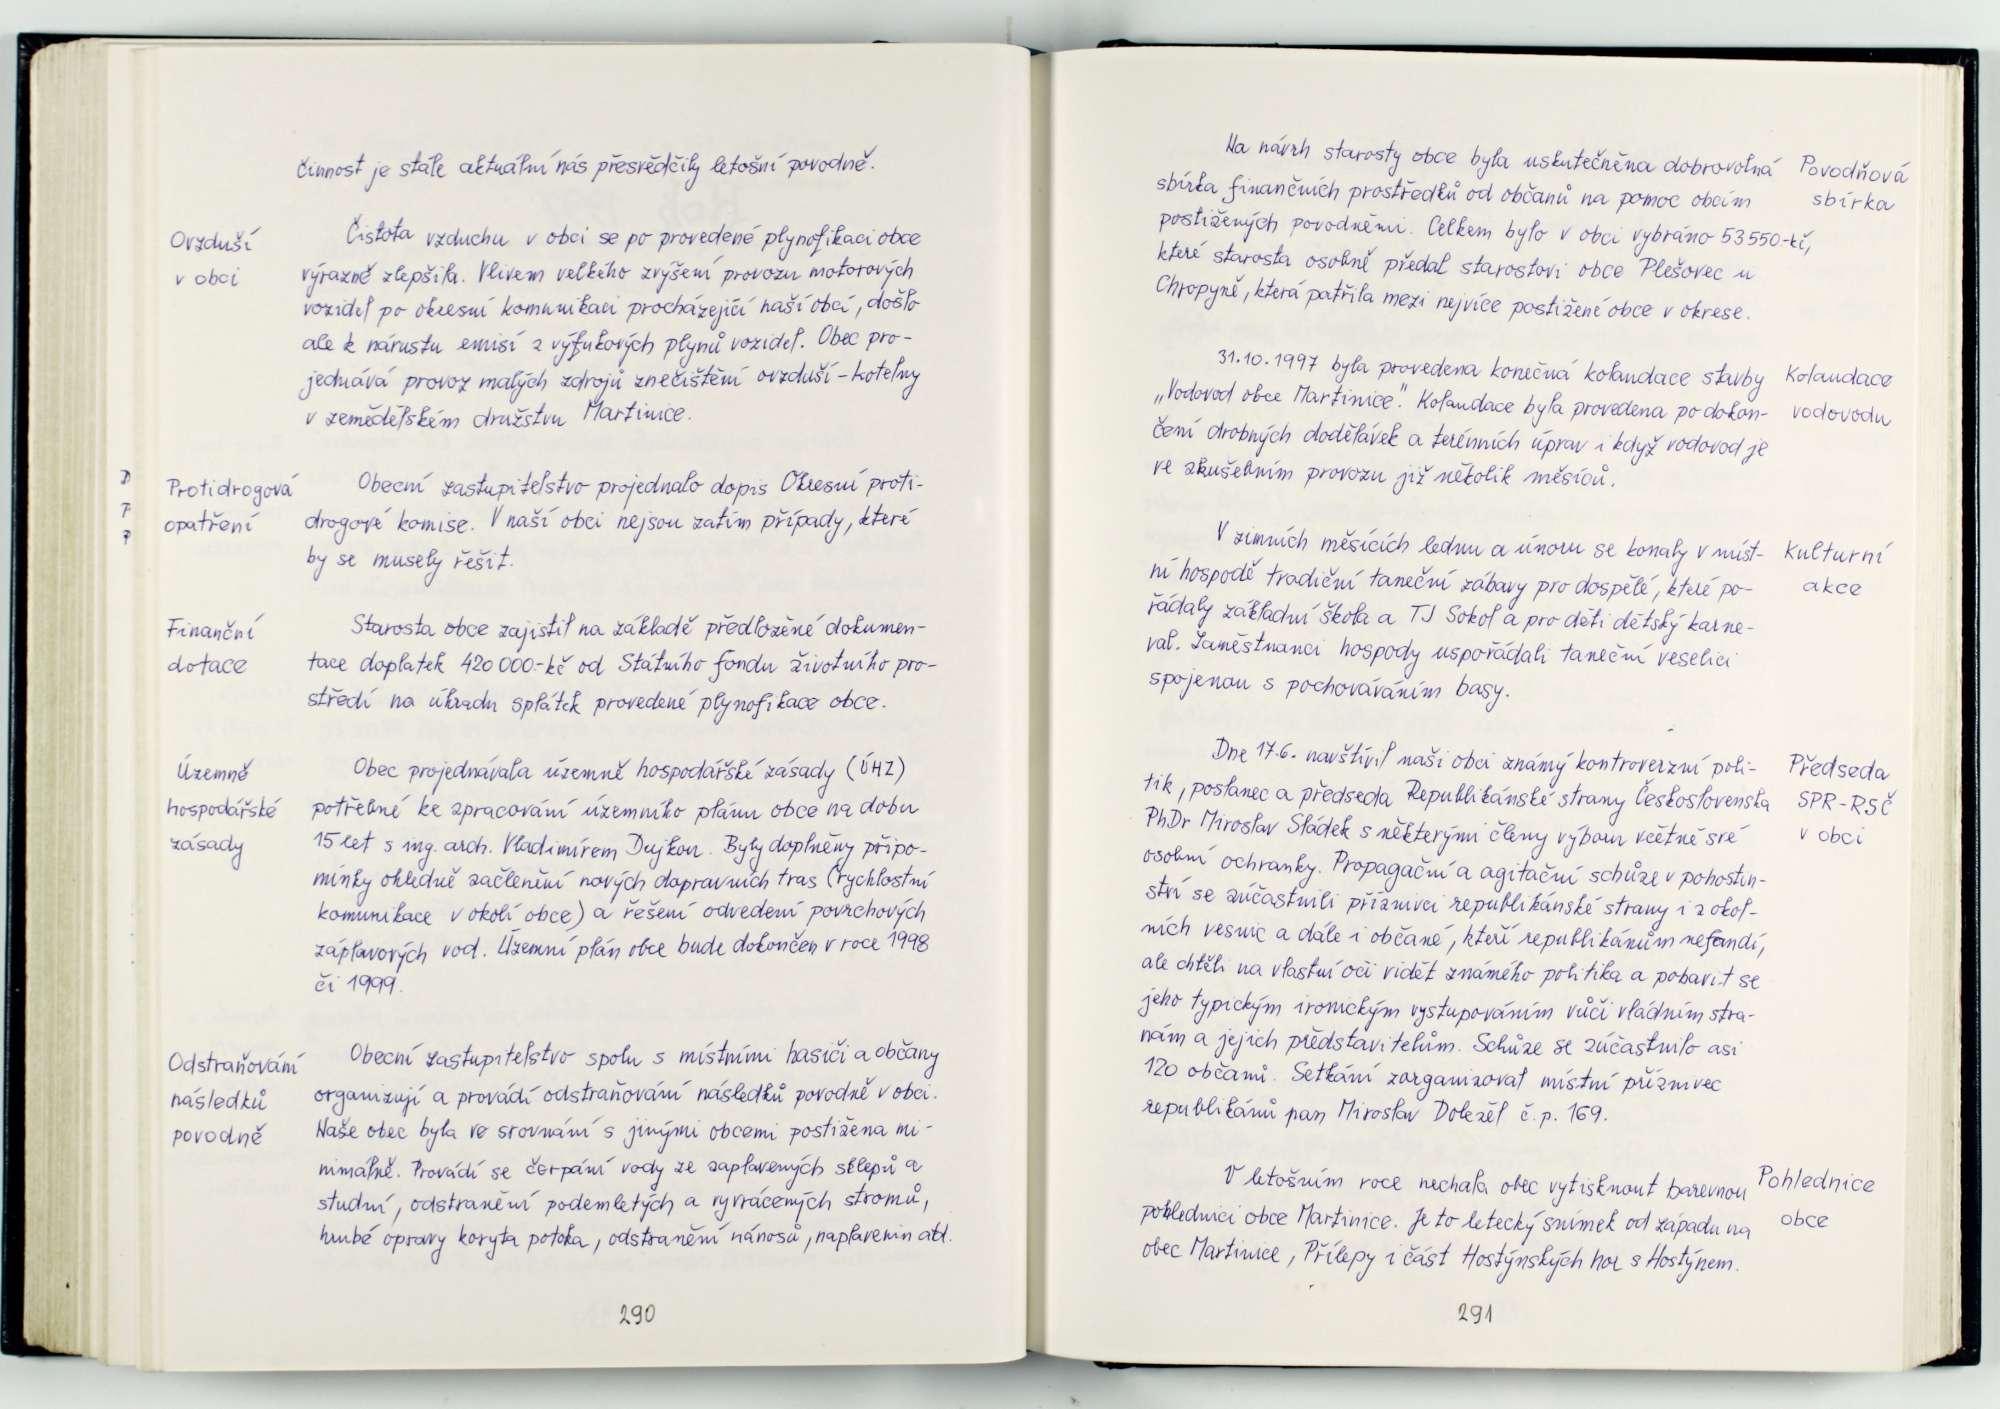 činnost je stále aktuální nás přesvědčily letošní povodně.
Ovzduší
v obci
Čistota vzduchu v obci se po provedené plynofikaci obce
výrazně zlepšila. Vlivem velkého zvýšení provozu motorových
vozidel po okresní komunikaci procházející naší obcí, došlo
ale k nárustu emisí z výfukových plynů vozidel. Obec pro-
jednává provoz malých zdrojů znečištění ovzduší - kotelny
v zemědělském družstvu Martinice.
Protidrogová
opatření
Obecní zastupitelstvo projednalo dopis Okresní proti-
drogové komise. V naší obci nejsou zatím případy, které
by se musely řešit.
Finanční
dotace
Starosta obce zajistil na základě předložené dokumen-
tace doplatek 420 000.- kč od Státního fondu životního pro-
středí na úhradu splátek provedené plynofikace obce.
Územně
hospodářské
zásady
Obec projednávala územně hospodářské zásady (ÚHZ)
potřebné ke zpracování územního plánu obce na dobu
15 let s ing. arch. Vladimírem Dujkou. Byly doplněny připo-
mínky ohledně začlenění nových dopravních tras (rychlostní
komunikace v okolí obce) a řešení odvedení povrchových
záplavových vod. Územní plán obce bude dokončen v roce 1998
či 1999.
Odstraňování
následků
povodně
Obecní zastupitelstvo spolu s místními hasiči a občany
organizují a provádí odstraňování následků povodně v obci.
Naše obec byla ve srovnání s jinými obcemi postižena mi-
nimálně. Provádí se čerpání vody ze zaplavených sklepů a
studní, odstranění podemletých a vyvrácených stromů,
hrubé opravy koryta potoka, odstranění nánosů, naplavenin atd.
290
Na návrh starosty obce byla uskutečněna dobrovolná
sbírka finančních prostředků od občanů na pomoc obcím
postižených povodněmi. Celkem bylo v obci vybráno 53 550.- kč,
které starosta osobně předal starostovi obce Plešovec u
Chropyně, která patřila mezi nejvíce postižené obce v okrese.
Povodňová
sbírka
31.10.1997 byla provedena konečná kolaudace stavby
„Vodovod obce Martinice". Kolaudace byla provedena po dokon-
čení drobných dodělávek a terénních úprav i když vodovod je
ve zkušebním provozu již několik měsíců.
Kolaudace
vodovodu
V zimních měsících lednu a únoru se konaly v míst-
ní hospodě tradiční taneční zábavy pro dospělé, které po-
řádaly základní škola a TJ Sokol a pro děti dětský karne-
val. Zaměstnanci hospody uspořádali taneční veselici
spojenou s pochováváním basy.
Kulturní
akce
Dne 17.6. navštívil naši obci známý kontroverzní poli-
tik, poslanec a předseda Republikánské strany Československa
PhDr Miroslav Sládek s některými členy výboru včetně své
osobní ochranky. Propagační a agitační schůze v pohostin-
ství se zúčastnili příznivci republikánské strany i z okol-
ních vesnic a dále i občané, kteří republikánům nefandí,
ale chtěli na vlastní oči vidět známého politika a pobavit se
jeho typickým ironickým vystupováním vůči vládním stra-
nám a jejich představitelům. Schůze se zúčastnilo asi
120 občanů. Setkání zorganizoval místní příznivec
republikánů pan Miroslav Doležel č.p. 169.
Předseda
SPR-RSČ
v obci
V letošním roce nechala obec vytisknout barevnou
pohlednici obce Martinice. Je to letecký snímek od západu na
obec Martinice, Přílepy i část Hostýnských hor s Hostýnem.
Pohlednice
obce
291